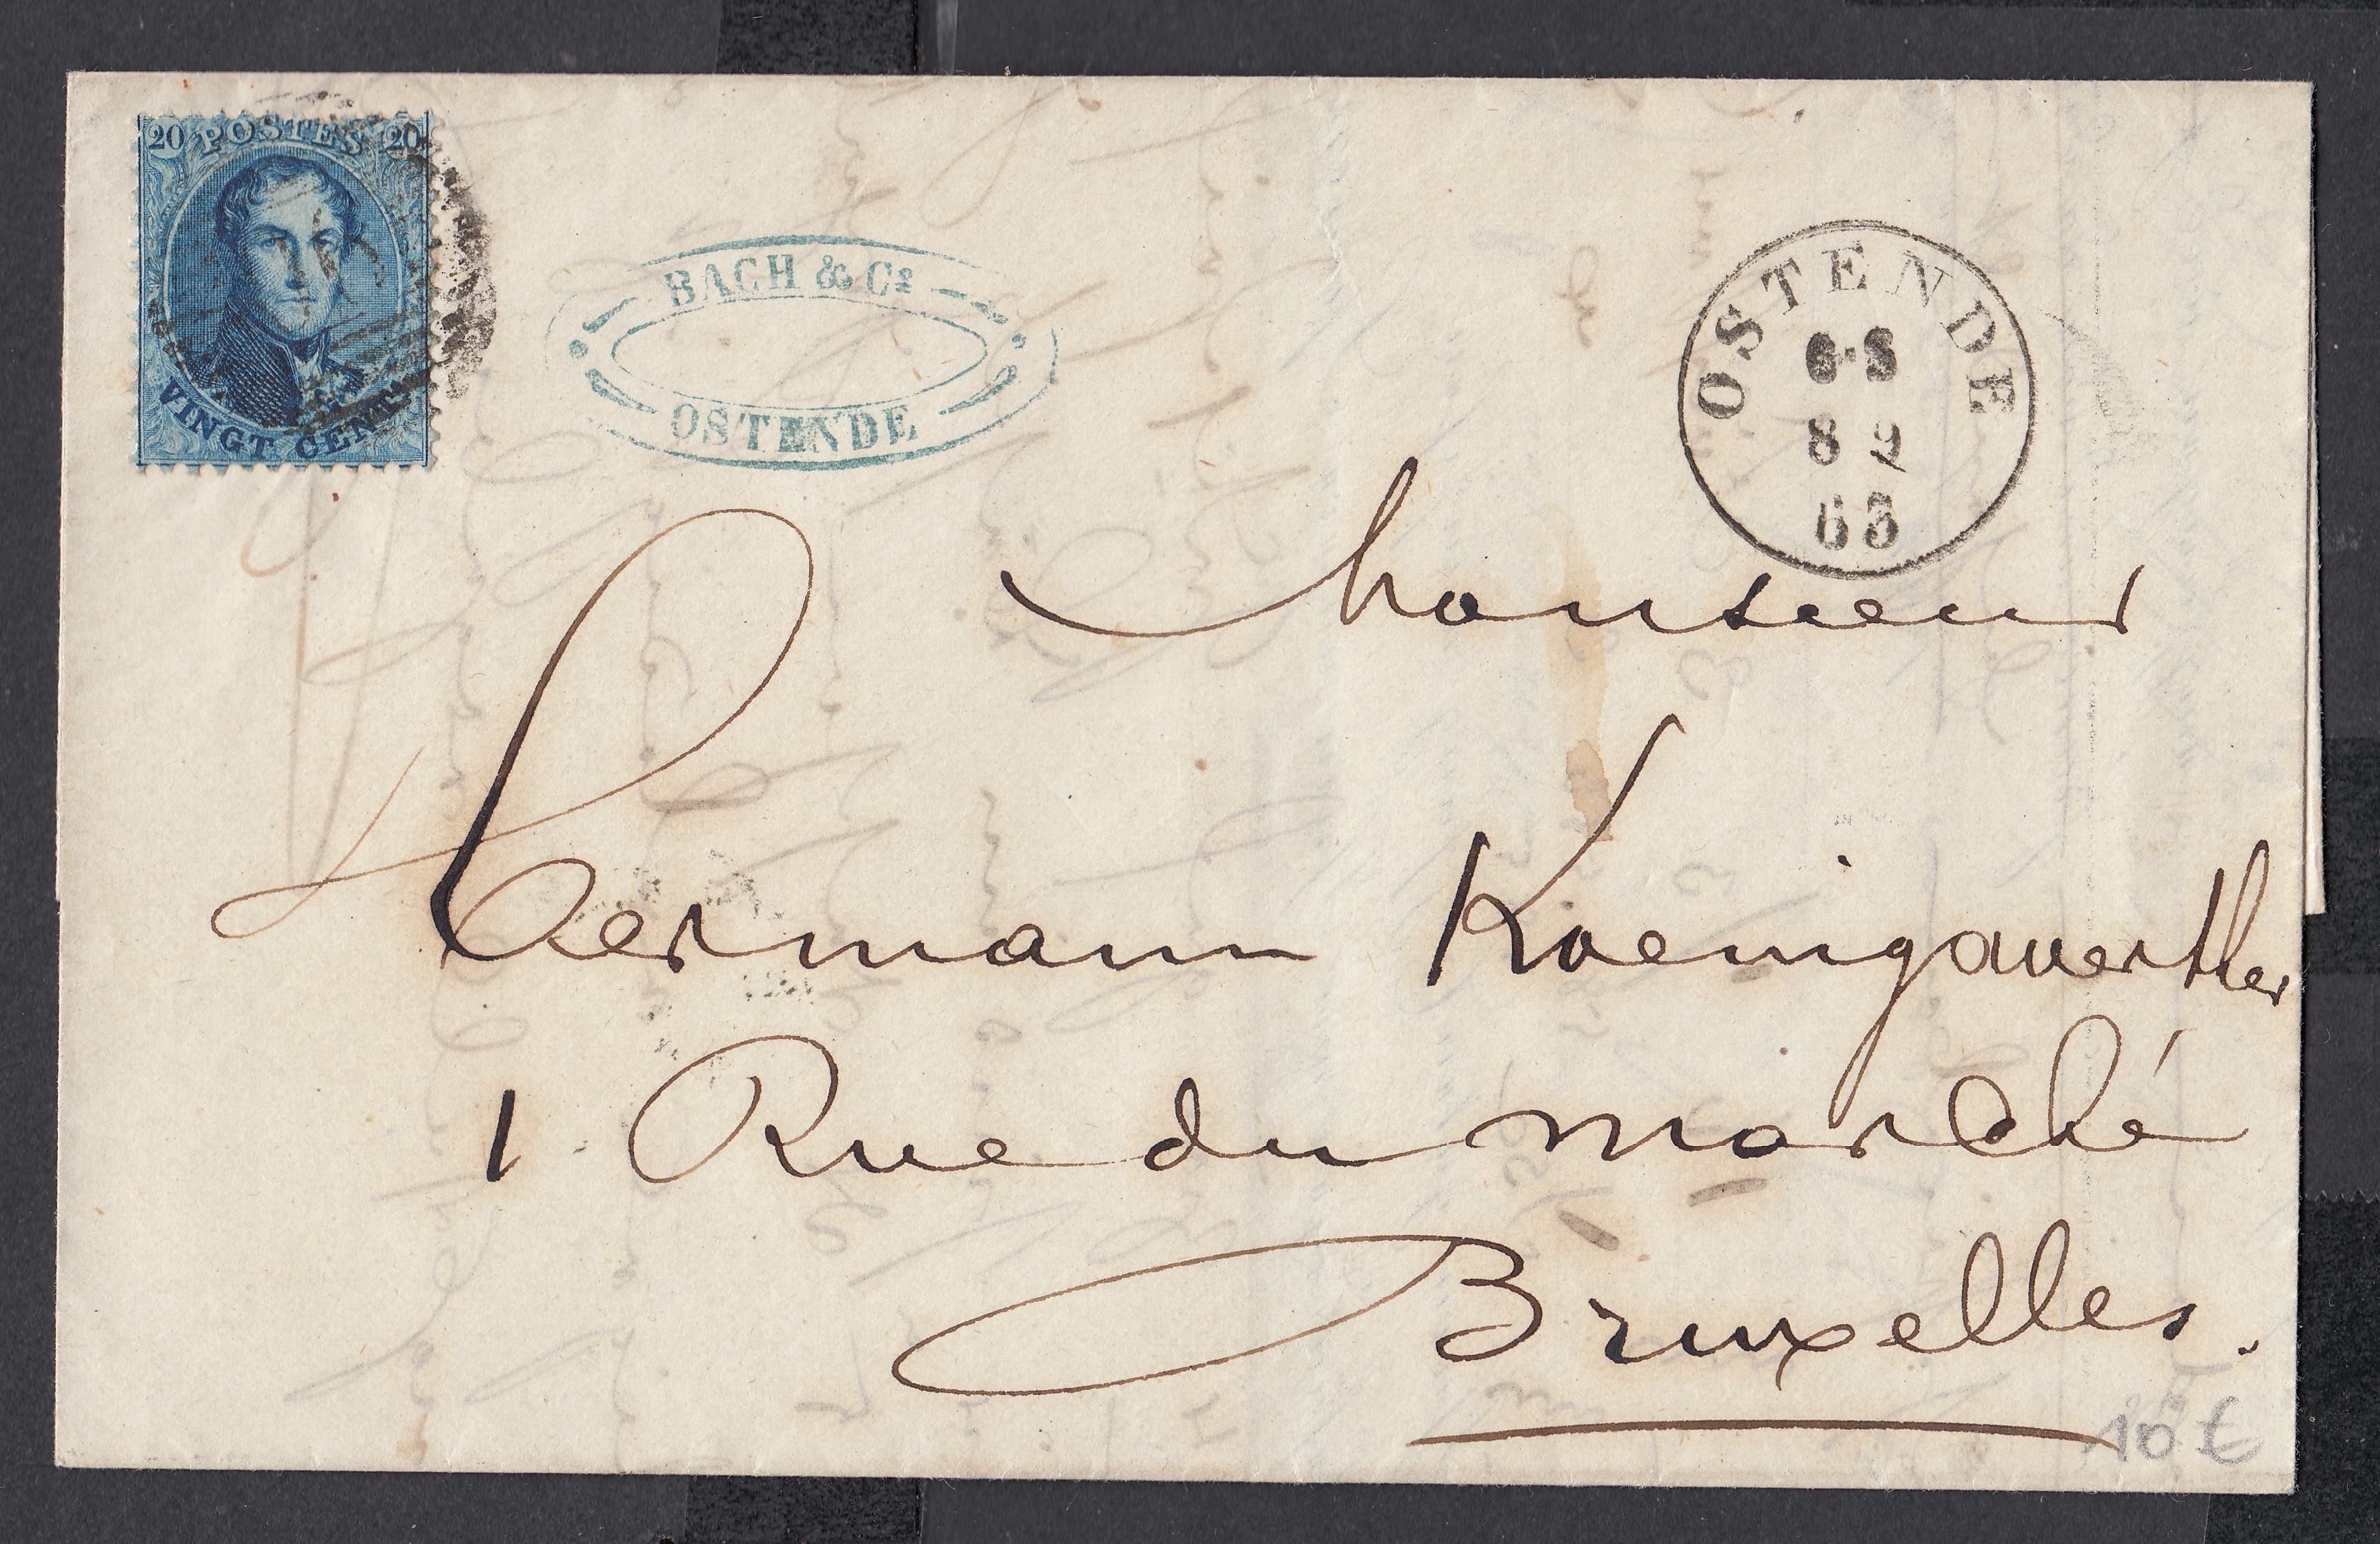 20 POSTES 20
VINGT CENT.
BACH & Cᵉ
OSTENDE
OSTENDE
6·S
8 9
63
Monsieur
Hermann Koenigswerther
1 Rue du marché
Bruxelles.
10 €